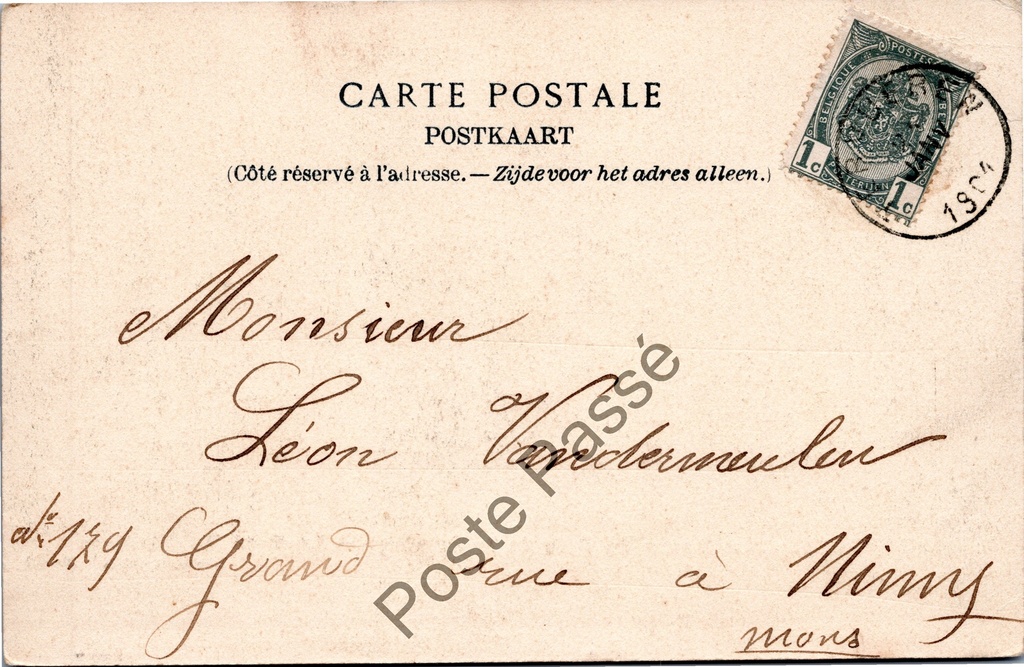 CARTE POSTALE
POSTKAART
(Côté réservé à l'adresse. — Zijde voor het adres alleen.)
BELGIQUE POSTES
1c 1c
JANV
1904
Monsieur
Léon Vandermeulen
179 Grand rue à Nimy
Mons
Poste Passé